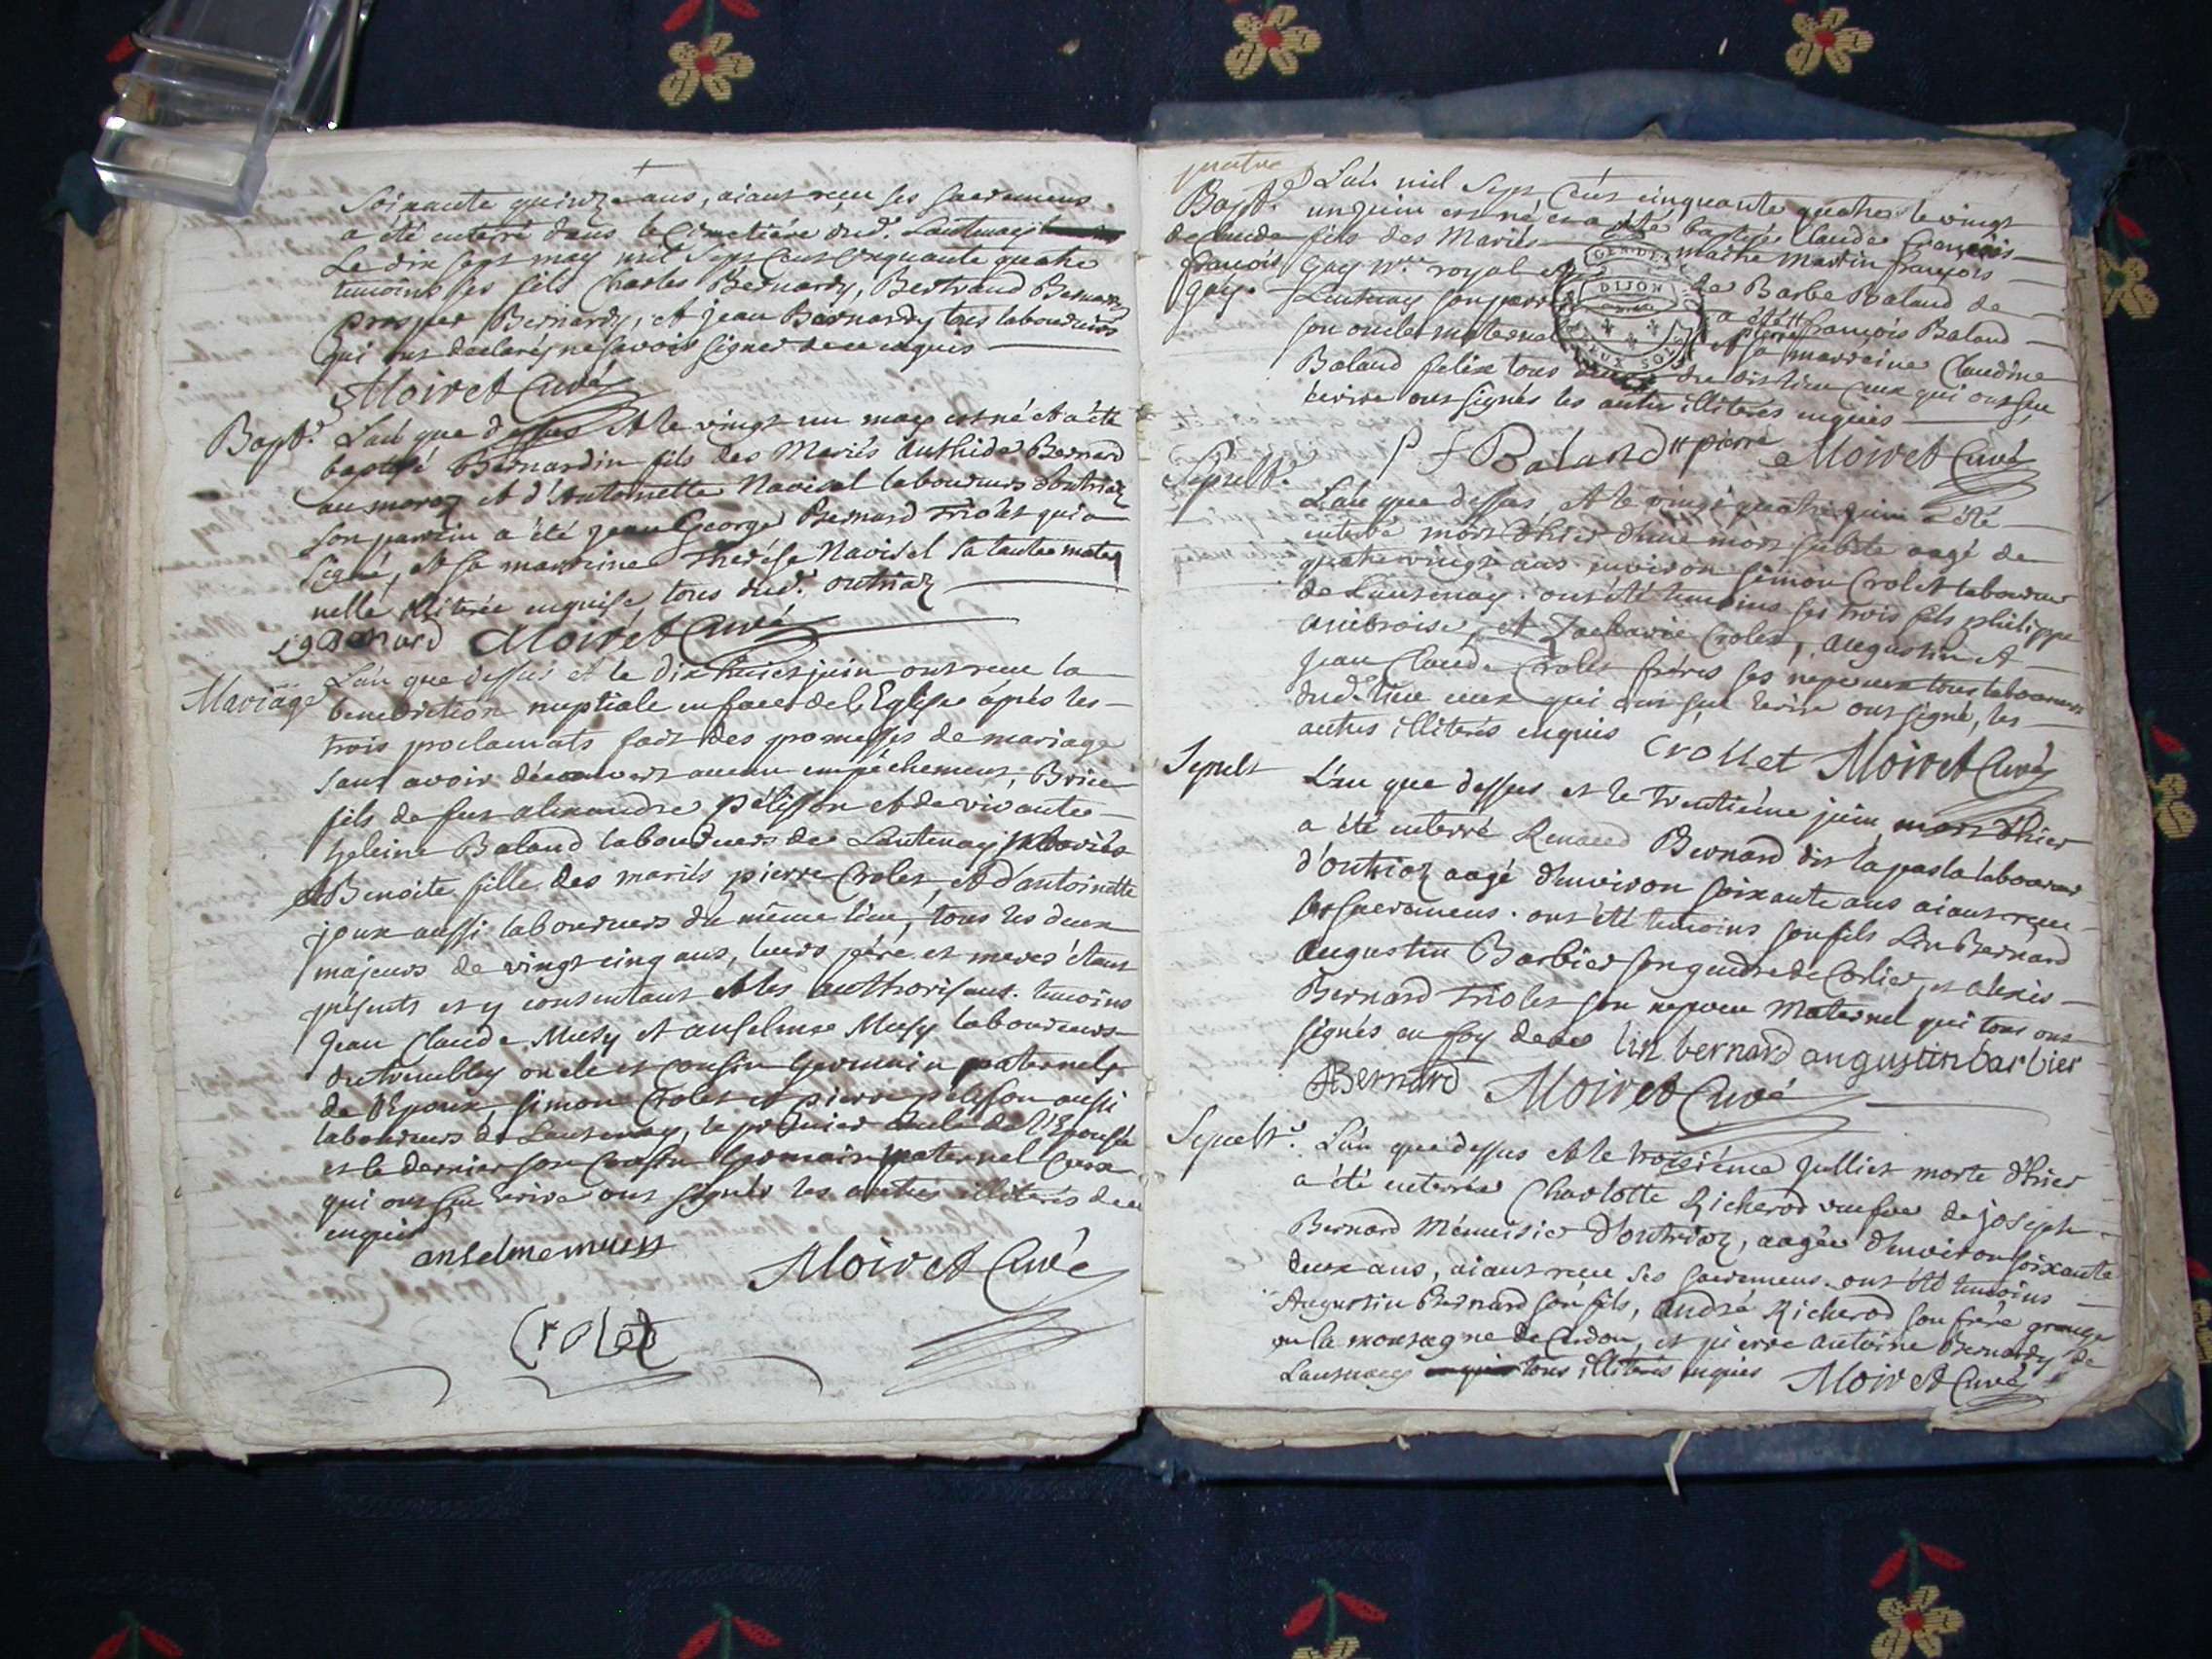 Soixante quinze ans, aiant reçu ses sacremens
a été enterré dans le Cimetière dud.t Lantenay
Le dix sept may mil sept cent cinquante quatre
temoins ses fils Charles Bernardy, Bertrand Bernardy
prosper Bernardy, et jean Bernardy tous laboureurs
qui ont declarés ne savoir signer de ce enquis
Moiret Curé
Bapt.e L'an que dessus et le vingt un may est né et a été
baptisé Bernardin fils des Mariés Bernard
et d'Antoinette Navisel laboureurs d'outriaz
son parrin a été jean George Bernard Triolet qui a
signé, et sa marreine Therése Navisel sa tante mater
nelle illiterée enquise, tous dud.t outriaz
Bernard Moiret Curé
Mariage L'an que dessus et le dix huict juin ont reçu la
benediction nuptiale en face de l'Eglise après les
trois proclamats fait des promesses de mariage
sans avoir découvert aucun empéchement, Brice
fils de feu alexandre pélisson et de vivante
heleine Baland laboureurs de Lantenay
et Benoite fille des mariés pierre Crolet, et d'antoinette
joux aussi laboureurs du même lieu, tous les deux
majeurs de vingt cinq ans, leurs pére et meres étant
présents et y consentant et les authorisant. temoins
jean Claude Musy et anselme Musy laboureurs
du trembley oncle et cousin Germain paternels
de l'Epoux, simon Crolet et pierre pelisson aussi
laboureurs de Lantenay, le premier oncle de l'Epouse
et le dernier son Cousin Germain paternel Ceux
qui ont sçu ecrire ont signés les autres illiterés de ce
enquis
anselme musy Moiret Curé
Crolet
L'an mil Sept Cent cinquante quatre le vingt
Bapt.e un juin est né et a été baptisé Claude François
de Claude fils des Mariés maitre Martin françois
françois Gay royal et de Barbe Baland de
Gay. Lantenay son parrin a été françois Baland
son oncle maternel et sa marreine Claudine
pierre
Baland felix tous dudit lieu ceux qui ont sçu
écrire ont signés les autres illiterés enquis
P f Baland pierre Moiret Curé
Sepult.e L'an que dessus, et le vingt quatre juin a été
enterré mort d'hier d'une mort subite aagé de
quatre vingt ans environ simon Crolet laboureur
de Lantenay. ont été temoins ses trois fils philippe
ambroise, et Zacharie Crolet, augustin et
jean Claude Crolet frères ses neveux tous laboureurs
dud.t lieu ceux qui ont sçu écrire ont signé, les
autres illiterés enquis Crollet Moiret Curé
Sepult L'an que dessus et le trentiéme juin mort d'hier
a été enterré Renaud Bernard dit la laboureur
d'outriaz aagé d'environ soixante ans aiant reçu
ses sacremens. ont été temoins son fils Lin Bernard
Augustin Barbier son gendre de Corlier, et alexis
Bernard Triolet son neveu Maternel qui tous ont
signés en foy de ce lin bernard augustin barbier
ABernard Moiret Curé
Sepult.e L'an que dessus et le troisiéme Julliet morte d'hier
a été enterrée Charlotte Richerod veufve de joseph
Bernard Ménuisier d'outriaz, aagée d'environ soixante
deux ans, aiant reçu ses sacremens. ont été temoins
Augustin Bernard son fils, andré Richerod son frère granger
en la montagne de Cerdon, et pierre antoine Bernardy de
Lantenay tous illiterés enquis Moiret Curé
DIJON